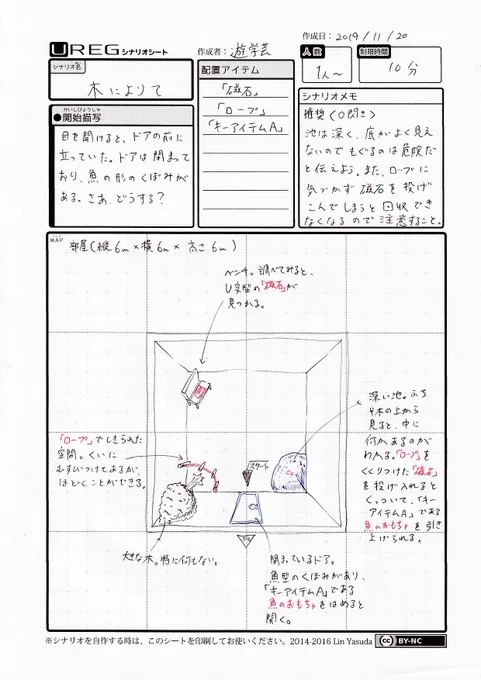 作成日：2019/11/20
UREG シナリオシート
作成者：遊学芸
人数
1人～
制限時間
10分
シナリオ名
木によりて
配置アイテム
「磁石」
「ロープ」
「キーアイテムA」
かいしびょうしゃ
●開始描写
目を開けると、ドアの前に
立っていた。ドアは閉まって
おり、魚の形のくぼみが
ある。さあ、どうする？
シナリオメモ
池は深く、底がよく見え
ないのでもぐるのは危険だ
と伝えよう。また、ロープに
気づかず磁石を投げ
こんでしまうと回収でき
なくなるので注意すること。
MAP
部屋(縦6m×横6m×高さ6m)
ベンチ。調べてみると、
U字型の「磁石」が
見つかる。
「ロープ」でしきられた
空間。くいに
むすびつけてあるが、
ほどくことができる。
スタート
深い池。ふち
や木の上から
見ると、中に
何かあるのが
わかる。「ロープ」を
くくりつけた「磁石」
を投げ入れると
くっついて、「キー
アイテムA」である
魚のおもちゃを引き
上げられる。
大きな木。特に何もない。
閉まっているドア。
魚型のくぼみがあり、
「キーアイテムA」である
魚のおもちゃをはめると
開く。
※シナリオを自作する時は、このシートを印刷してお使いください。2014-2016 Lin Yasuda
cc BY-NC